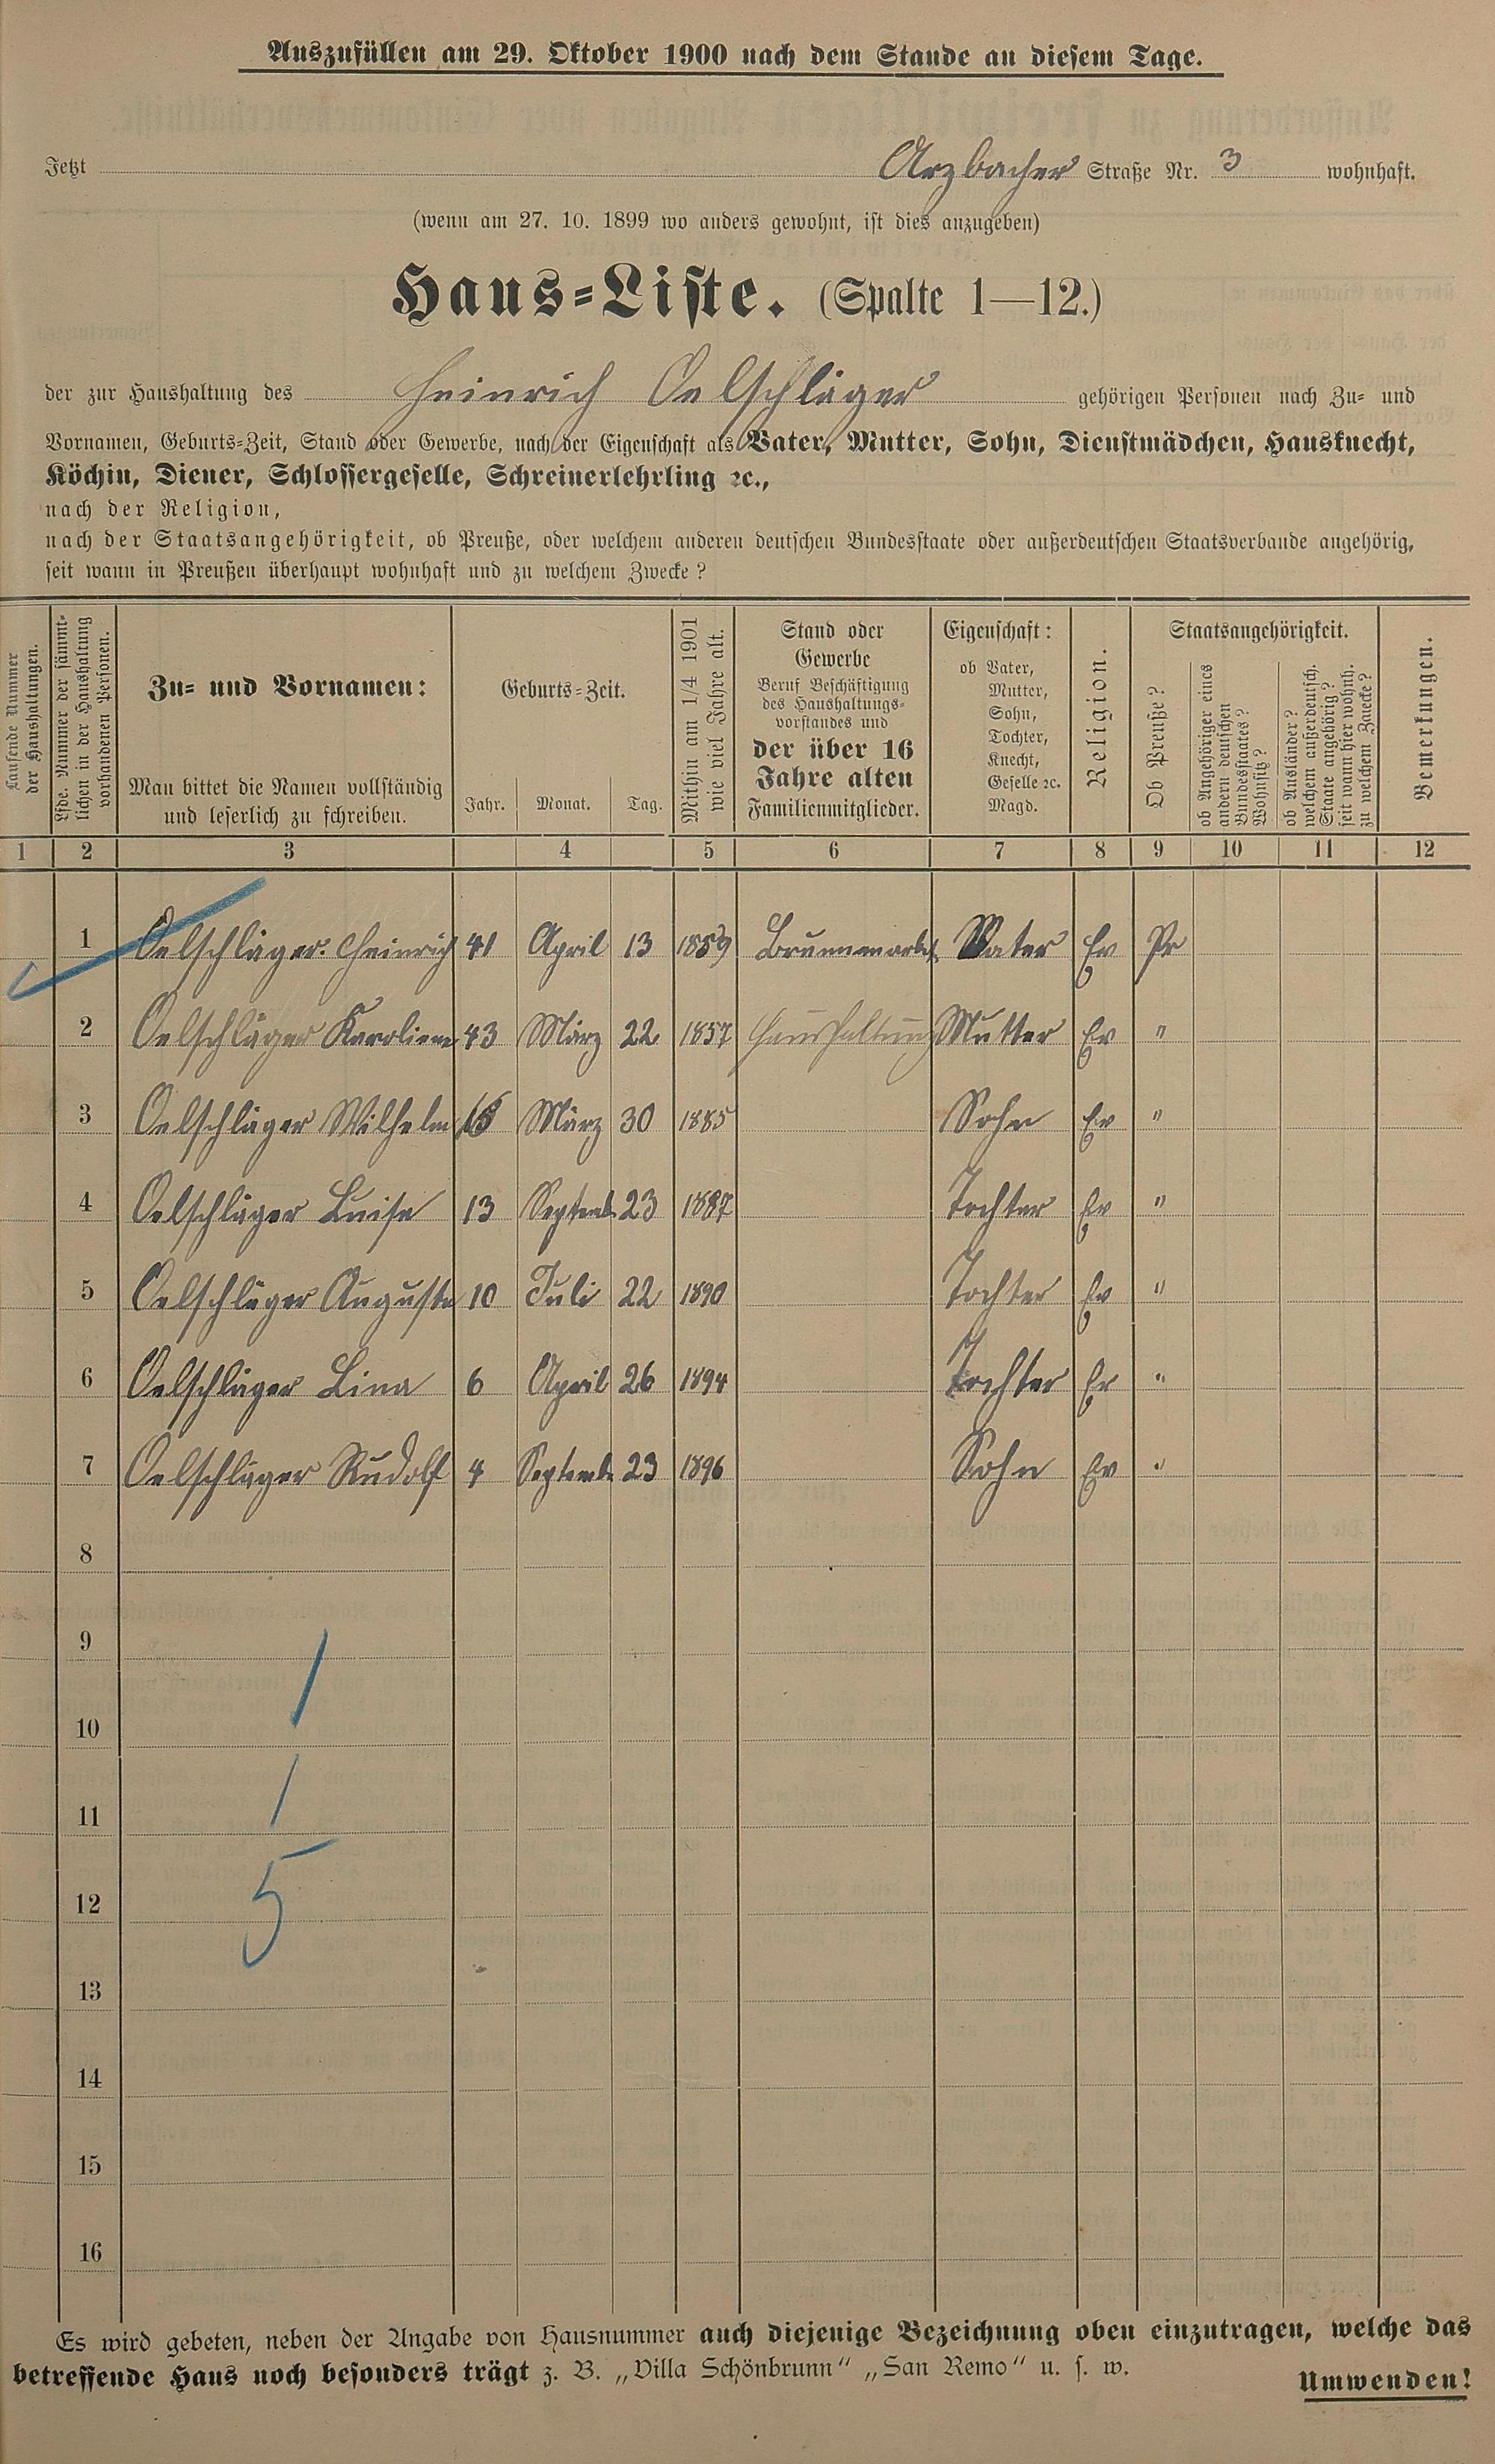 Auszufüllen am 29. Oktober 1900 nach dem Stande an diesem Tage.
Jetzt Arzbacher Straße Nr. 3 wohnhaft.
(wenn am 27. 10. 1899 wo anders gewohnt, ist dies anzugeben)
Haus-Liste. (Spalte 1—12.)
der zur Haushaltung des Heinrich Oelschläger gehörigen Personen nach Zu- und
Vornamen, Geburts-Zeit, Stand oder Gewerbe, nach der Eigenschaft als Vater, Mutter, Sohn, Dienstmädchen, Hausknecht,
Köchin, Diener, Schlossergeselle, Schreinerlehrling ꝛc.,
nach der Religion,
nach der Staatsangehörigkeit, ob Preuße, oder welchem anderen deutschen Bundesstaate oder außerdeutschen Staatsverbande angehörig,
seit wann in Preußen überhaupt wohnhaft und zu welchem Zwecke?
Laufende Nummer
der Haushaltungen.
Lfde. Nummer der sämmt-
lichen in der Haushaltung
vorhandenen Personen.
Zu- und Vornamen:
Man bittet die Namen vollständig
und leserlich zu schreiben.
Geburts-Zeit.
Jahr. Monat. Tag.
Mithin am 1/4 1901
wie viel Jahre alt.
Stand oder
Gewerbe
Beruf Beschäftigung
des Haushaltungs-
vorstandes und
der über 16
Jahre alten
Familienmitglieder.
Eigenschaft:
ob Vater,
Mutter,
Sohn,
Tochter,
Knecht,
Geselle ꝛc.
Magd.
Religion.
Staatsangehörigkeit.
Ob Preuße?
ob Angehöriger eines
andern deutschen
Bundesstaates?
Wohnsitz?
ob Ausländer?
welchem außerdeutsch.
Staate angehörig?
seit wann hier wohnh.
zu welchem Zwecke?
Bemerkungen.
1 2 3 4 5 6 7 8 9 10 11 12
1 Oelschläger. Heinrich 41 April 13 1859 Vater Ev Pr
2 Oelschläger Karoliene 43 März 22 1857 Haushaltung Mutter Ev "
3 Oelschläger Wilhelm März 30 1885 Sohn Ev "
4 Oelschläger Luise 13 Septemb. 23 1887 Tochter Ev "
5 Oelschläger Auguste 10 Juli 22 1890 Tochter Ev "
6 Oelschläger Lina 6 April 26 1894 Tochter Ev "
7 Oelschläger Rudolf 4 Septemb. 23 1896 Sohn Ev "
8
9
1
10
11 1
12 5
13
14
15
16
Es wird gebeten, neben der Angabe von Hausnummer auch diejenige Bezeichnung oben einzutragen, welche das
betreffende Haus noch besonders trägt z. B. „Villa Schönbrunn“ „San Remo“ u. s. w.
Umwenden!